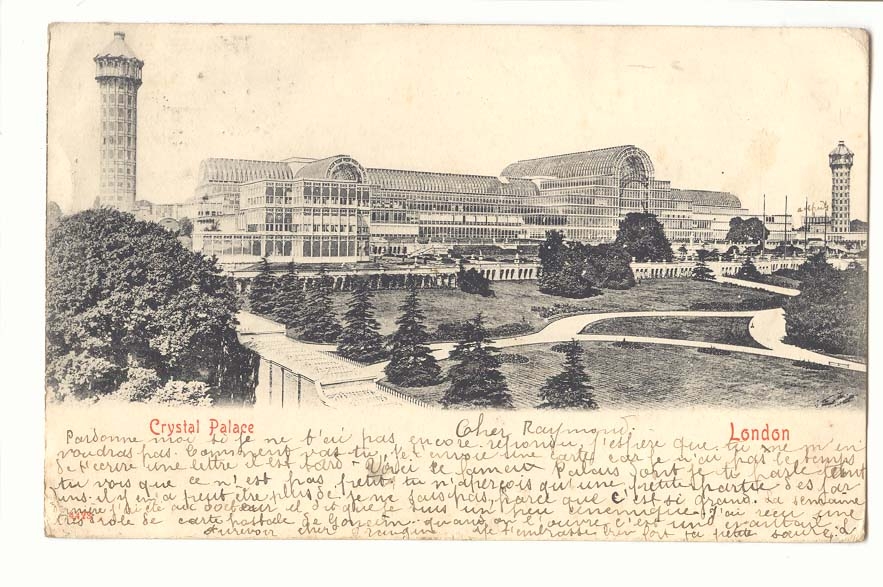 Crystal Palace
London
Cher Raymond.
Pardonne moi si je ne t'ai pas encore répondu, j'espère que tu ne m'en
voudras pas. Comment vas-tu, je t'envoie une carte car je n'ai pas le temps
de t'écrire une lettre il est tard. Voici le fameux Palais dont je tu parle tant
tu vois que ce n'est pas petit tu n'aperçois qu'une petite partie des jar
dins il y en a peut être plus de je ne sais pas, parce que c'est si grand. La semaine
dernière j'ai été au docteur il dit que je suis un peu anémique j'ai reçu une
très drôle de carte postale de quand on l'ouvre c'est un
Aurevoir cher frangin je t'embrasse bien fort ta petite sœur